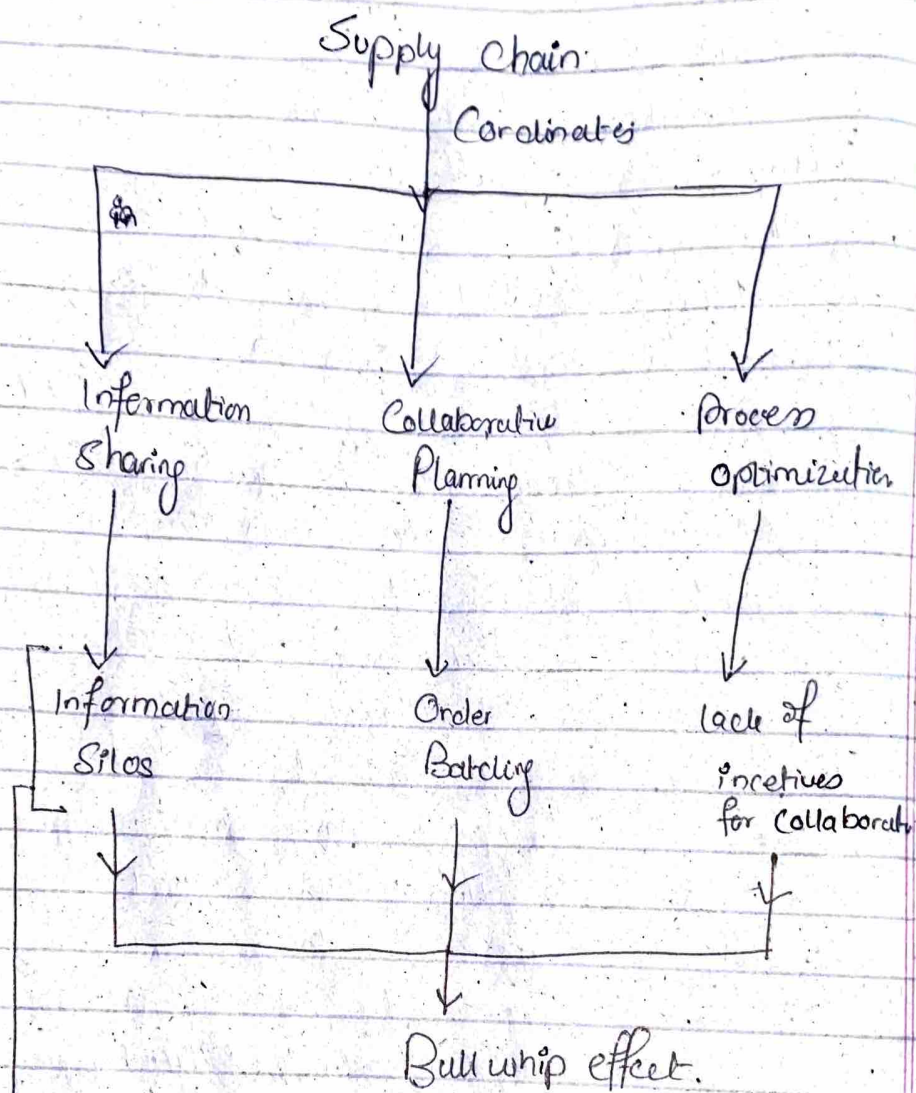 Supply Chain
Cordinates
Information
Sharing
Collaborative
Planning
Process
Optimization
Information
Silos
Order
Batching
lack of
incetives
for Collaborat
Bullwhip effect.